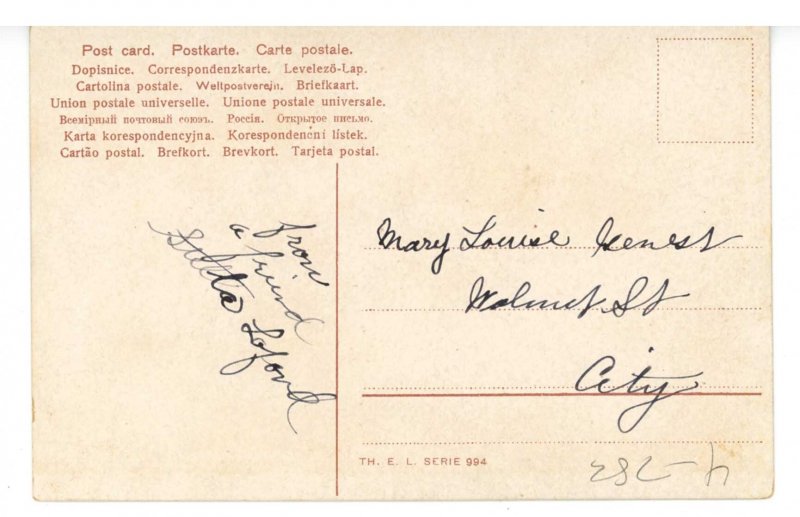 Post card. Postkarte. Carte postale.
Dopisnice. Correspondenzkarte. Levelező-Lap.
Cartolina postale. Weltpostverein. Briefkaart.
Union postale universelle. Unione postale universale.
Всемірный почтовый союзъ. Россія. Открытое письмо.
Karta korespondencyjna. Korespondenční lístek.
Cartão postal. Brefkort. Brevkort. Tarjeta postal.
from
a friend
Lafond
Mary Louise Genest
Walnut St
City
TH. E. L. SERIE 994